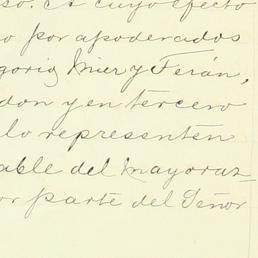 so. A cuyo efecto
o por apoderados
gorio Mier y Terán,
don y en tercero
lo represntén
able del mayoraz-
or parte del Señor